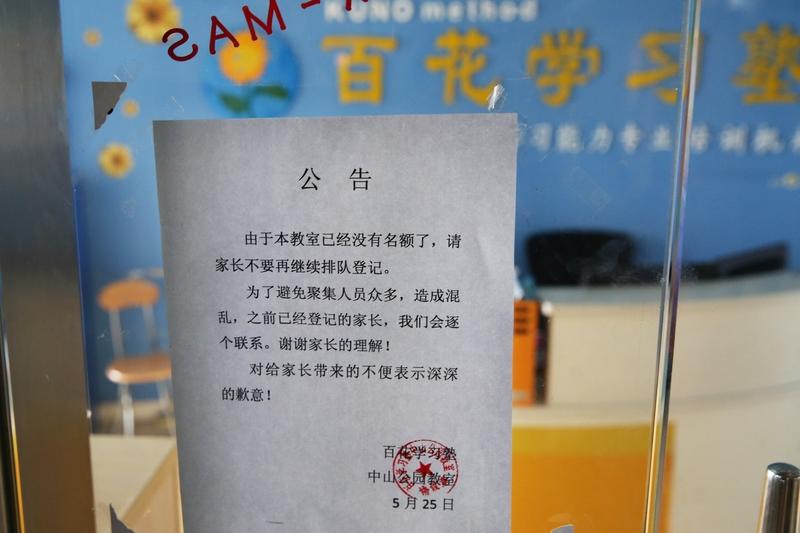 KUNO method
SAM-
百花学习塾
习能力专业培训机
公 告
由于本教室已经没有名额了，请
家长不要再继续排队登记。
为了避免聚集人员众多，造成混
乱，之前已经登记的家长，我们会逐
个联系。谢谢家长的理解！
对给家长带来的不便表示深深
的歉意！
百花学习塾
中山公园教室
5 月 25 日